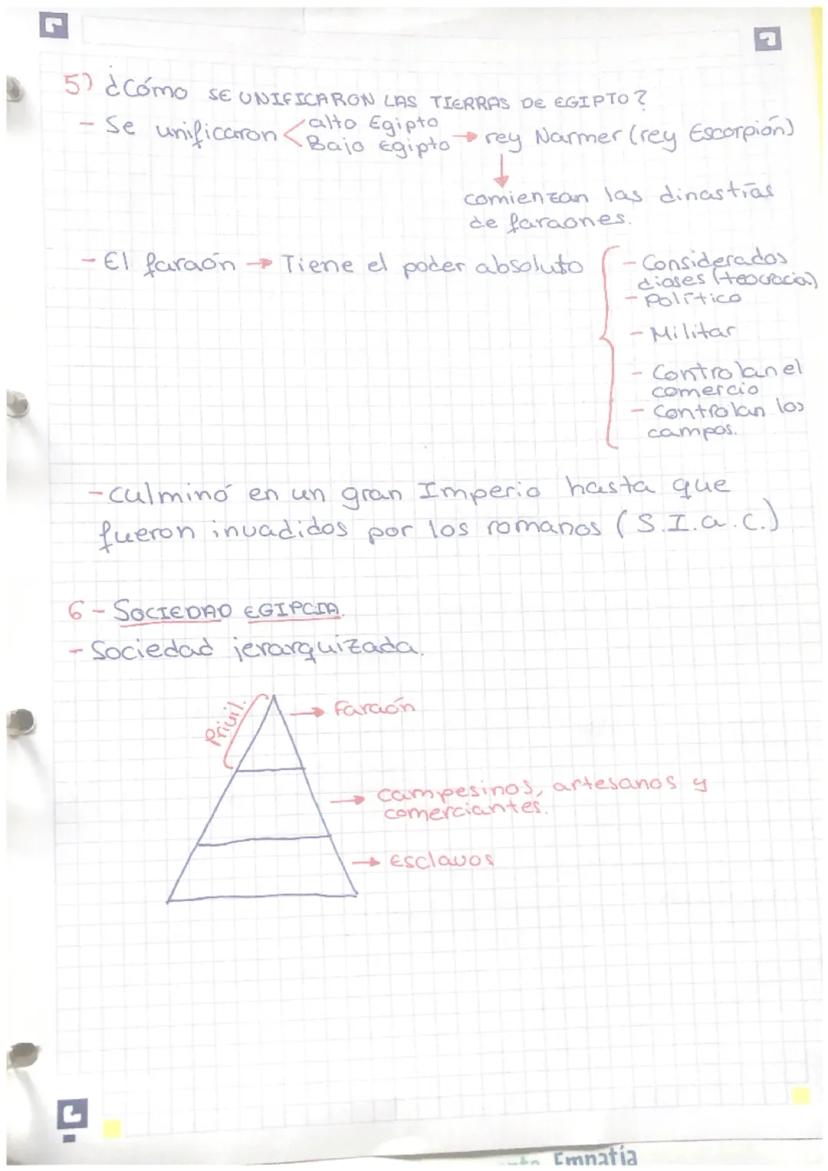 5) ¿Cómo SE UNIFICARON LAS TIERRAS DE EGIPTO?
- Se unificaron < alto Egipto
Bajo Egipto → rey Narmer (rey Escorpión)
↓
comienzan las dinastías
de faraones.
- El faraón → Tiene el poder absoluto { - Considerados
dioses (teocracia)
- Político
- Militar
- Controlan el
comercio
- Controlan los
campos.
- culminó en un gran Imperio hasta que
fueron invadidos por los romanos (S.I.a.C.)
6 - SOCIEDAD EGIPCIA.
- Sociedad jerarquizada.
Privil.
→ Faraón
→ campesinos, artesanos y
comerciantes.
→ esclavos
Emnatia